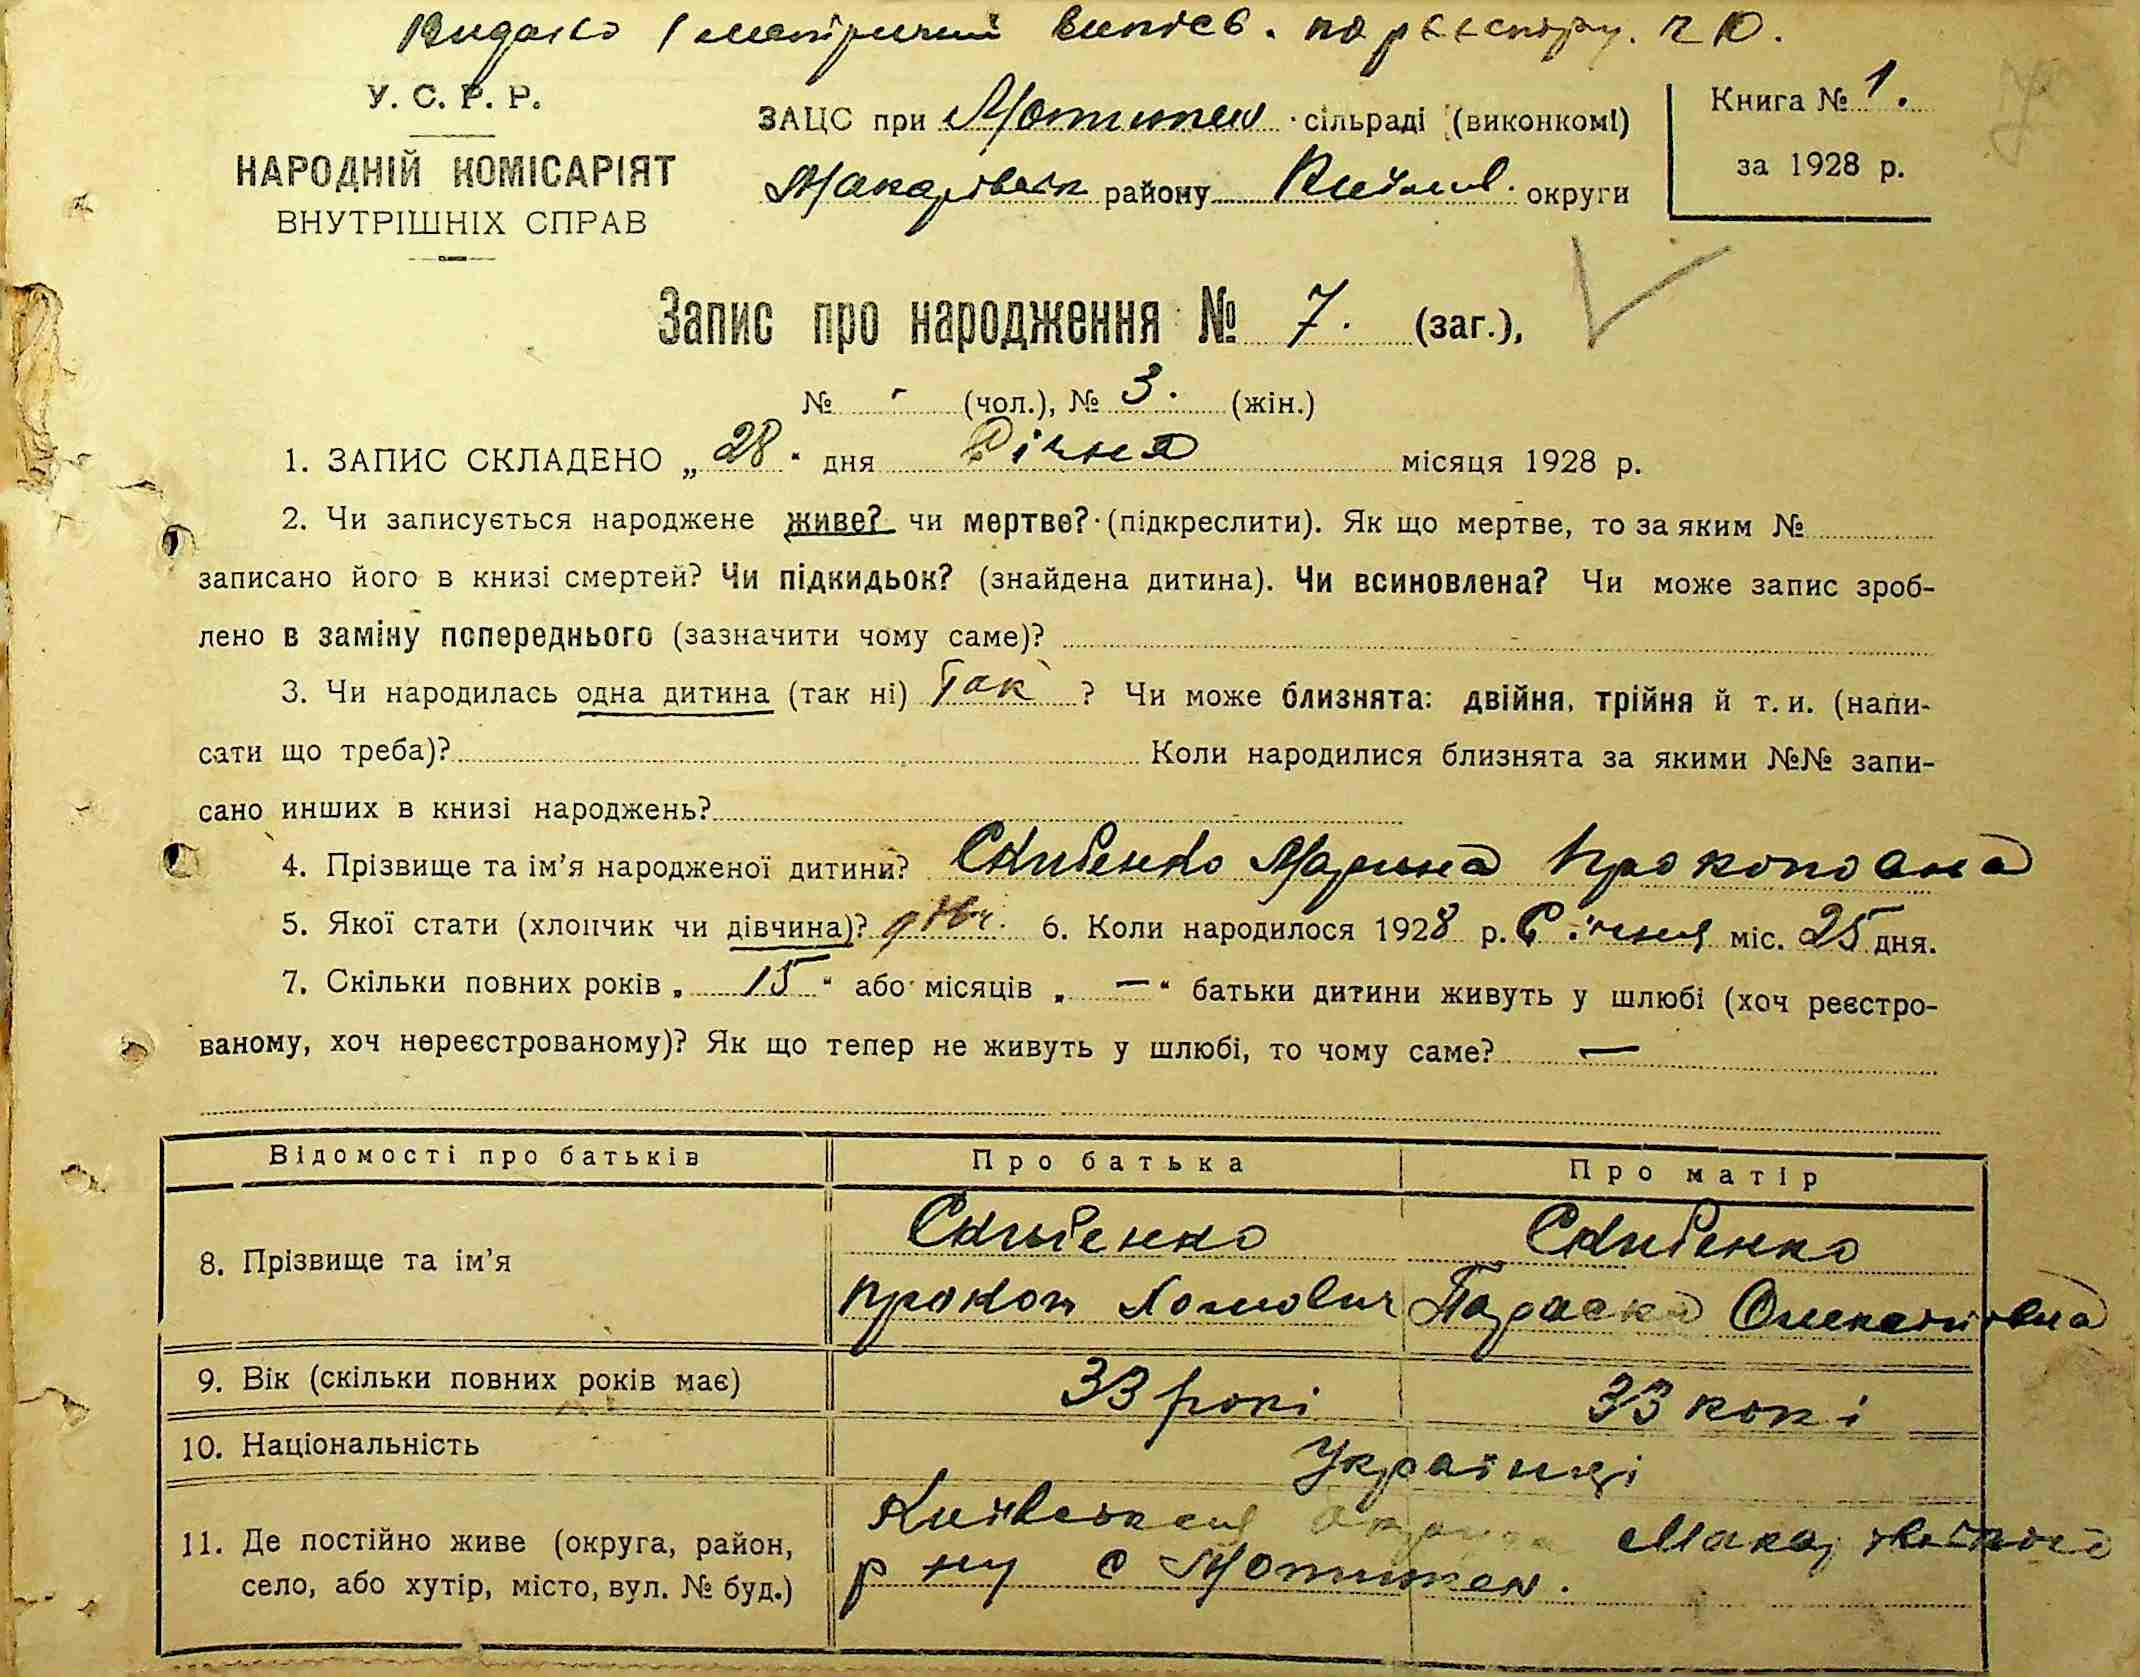 Видано 1 метричний випис. по реєстру. ч 10.
У. С. Р. Р.
НАРОДНІЙ КОМІСАРІЯТ
ВНУТРІШНІХ СПРАВ
ЗАЦС при Мотижен сільраді (виконкомі)
Макарівськ району Київськ округи
Книга № 1.
за 1928 р.
Запис про народження № 7. (заг.),
№ - (чол.), № 3. (жін.)
1. ЗАПИС СКЛАДЕНО „28“ дня Січня місяця 1928 р.
2. Чи записується народжене живе? чи мертве? (підкреслити). Як що мертве, то за яким №
записано його в книзі смертей? Чи підкидьок? (знайдена дитина). Чи всиновлена? Чи може запис зроб-
лено в заміну попереднього (зазначити чому саме)?
3. Чи народилась одна дитина (так ні) Так ? Чи може близнята: двійня, трійня й т. и. (напи-
сати що треба)? Коли народилися близнята за якими №№ запи-
сано инших в книзі народжень?
4. Прізвище та ім'я народженої дитини? Скибенко Марина Прокоповна
5. Якої стати (хлопчик чи дівчина)? дівч. 6. Коли народилося 1928 р. Січня міс. 25 дня.
7. Скільки повних років „ 15 “ або місяців „ — “ батьки дитини живуть у шлюбі (хоч реєстро-
ваному, хоч нереєстрованому)? Як що тепер не живуть у шлюбі, то чому саме? —
Відомості про батьків Про батька Про матір
8. Прізвище та ім'я Скибенко Прокоп Хомович Скибенко Параска
9. Вік (скільки повних років має) 33 рокі 33 рокі
10. Національність Українці
11. Де постійно живе (округа, район,
село, або хутір, місто, вул. № буд.)
Київської округи Макарівського
р ну с Мотижен.